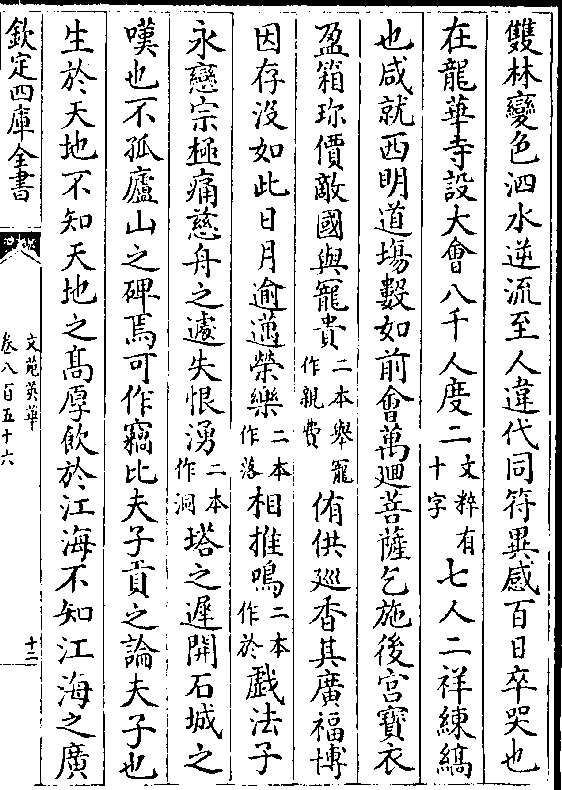 雙林變色泗水逆流至人違代同符異感百日卒哭也
在龍華寺設大會八千人度二文粹有十字七人二祥練縞
也咸就西明道場數如前會萬廻菩薩乞施後宮寶衣
盈箱珎價敵國與寵貴二本舉寵作親費侑供廵香其廣福博
因存沒如此日月逾邁榮樂二本作落相推鳴二本作於戲法子
永戀宗極痛慈舟之遽失恨湧二本作洞塔之遲開石城之
嘆也不孤廬山之碑焉可作竊比夫子貢之論夫子也
生於天地不知天地之髙厚飲於江海不知江海之廣
欽定四庫全書
文苑英華
卷八百五十六
十二